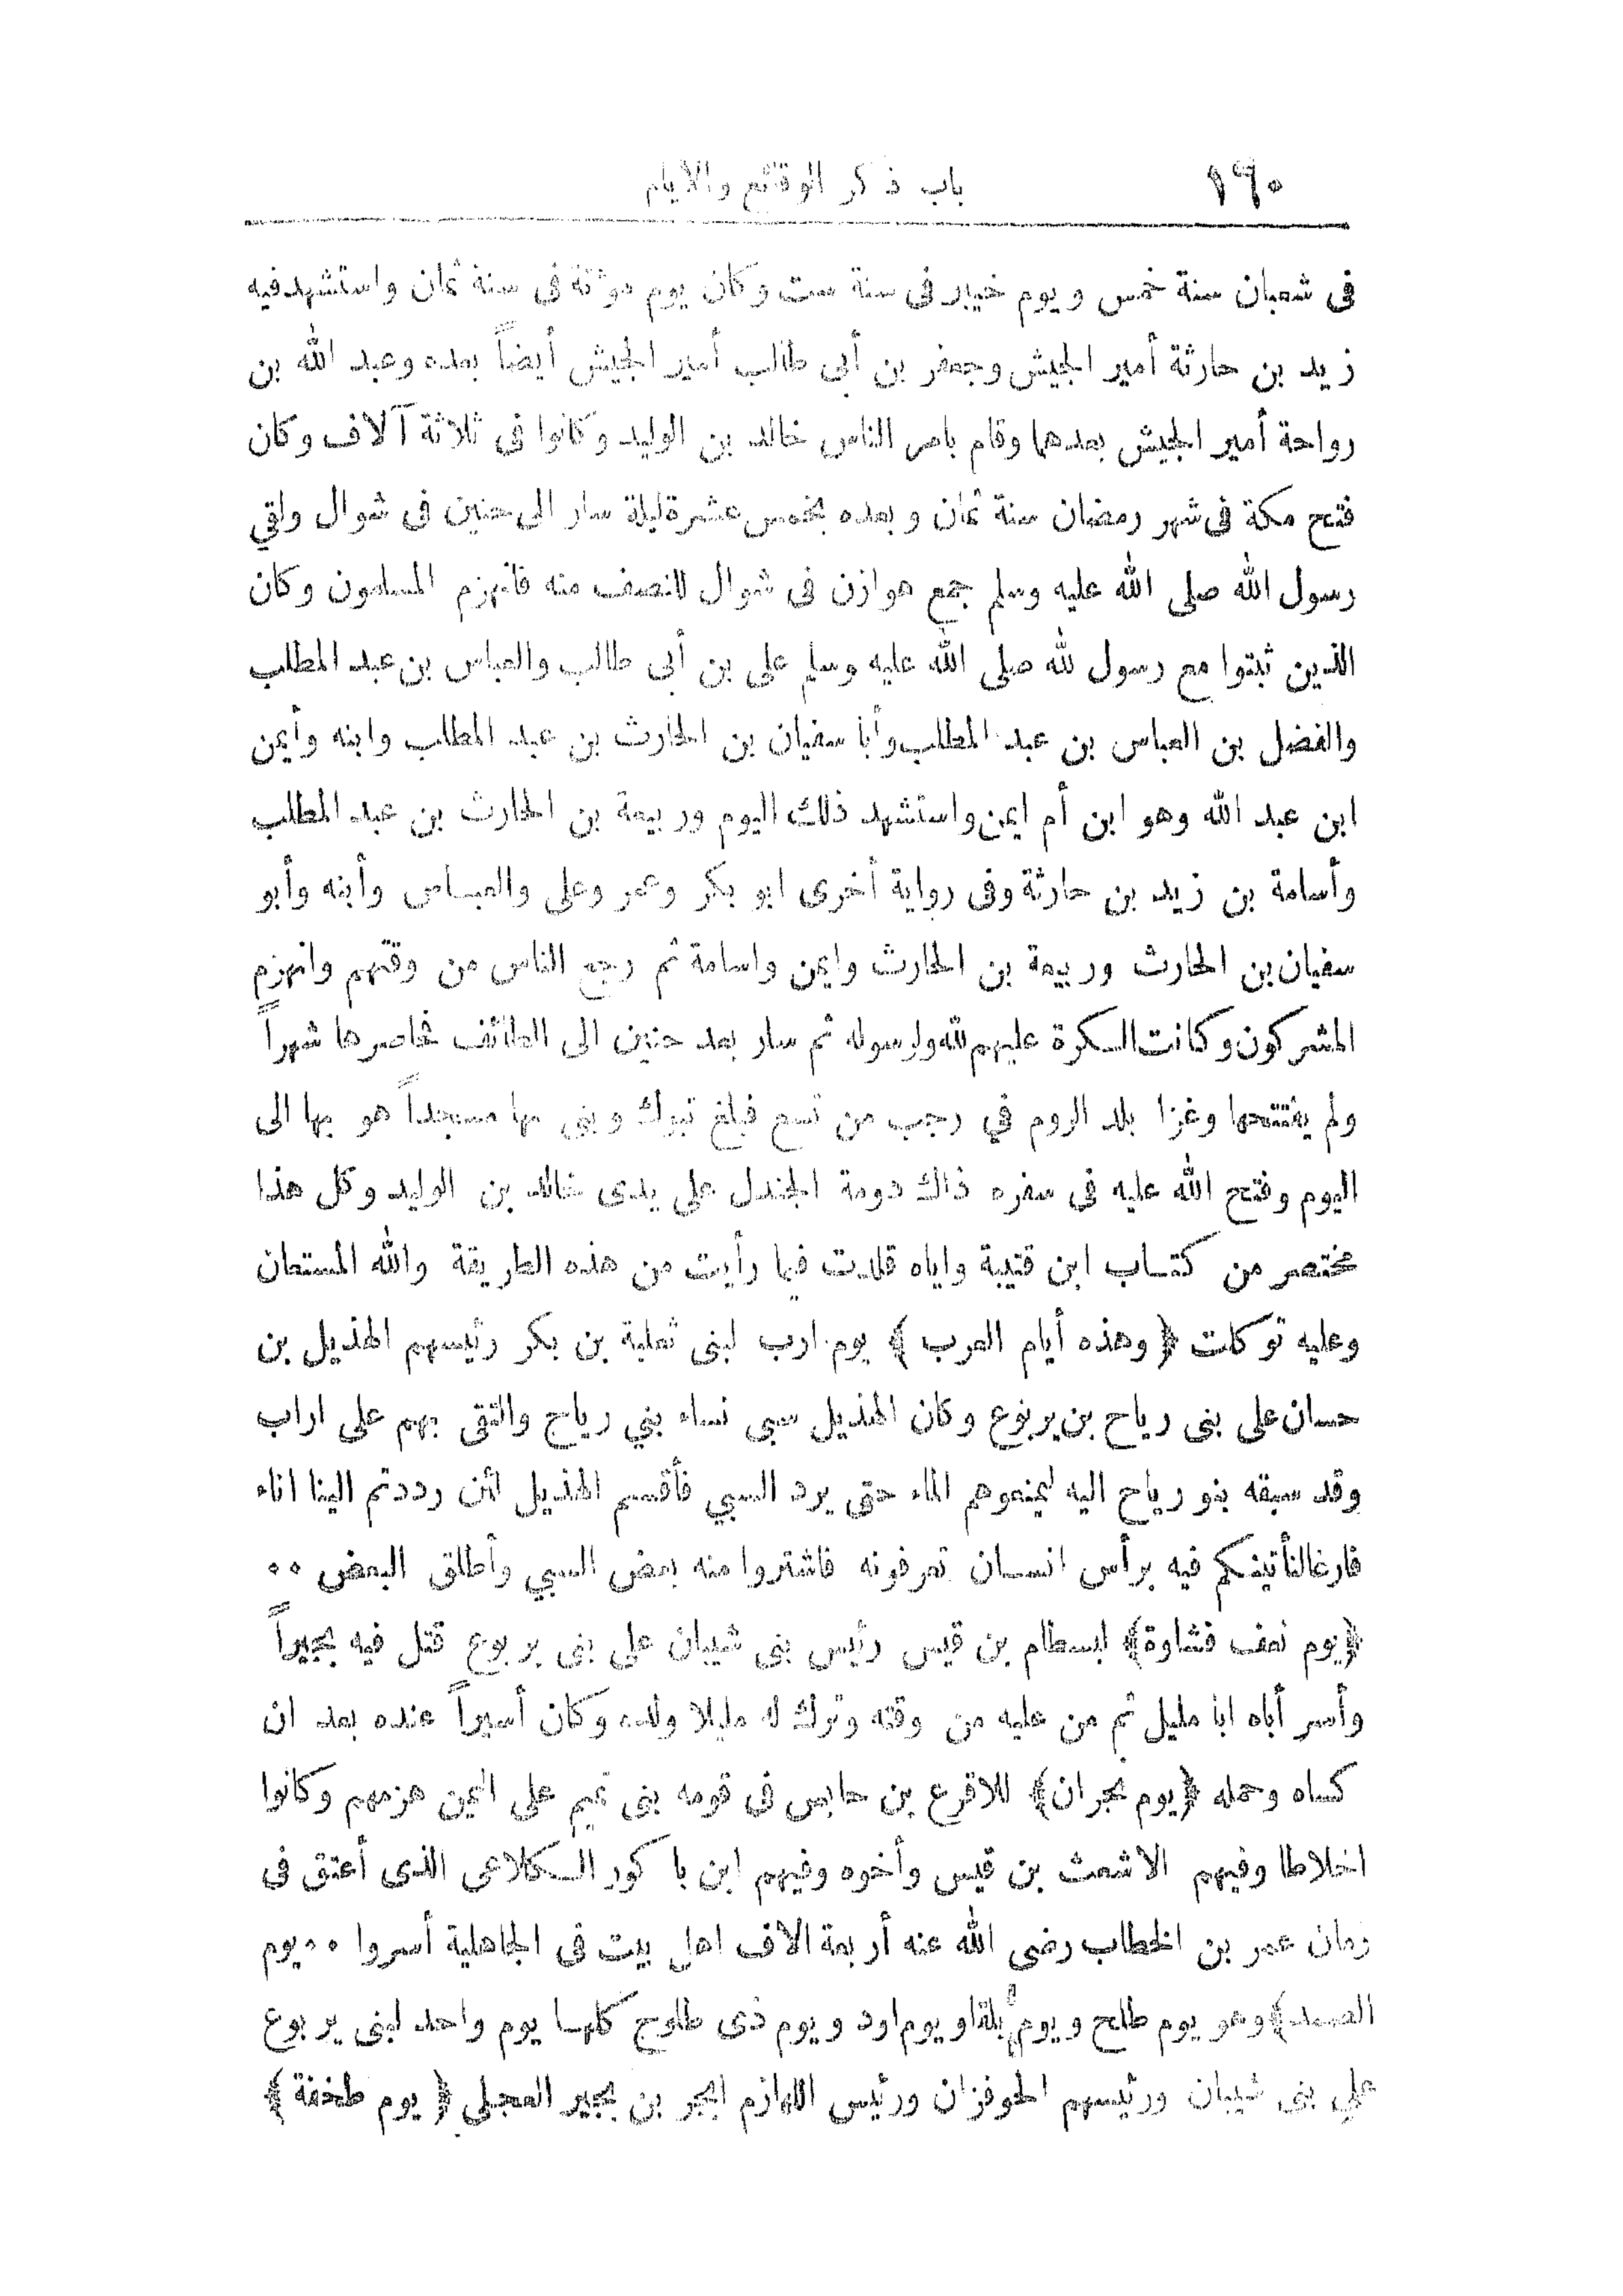 ١٦٠ باب ذكر الوقائع والايام
فى شعبان سنة خمس ويوم خيبر فى سنة ست وكان يوم موئتة فى سنة ثمان واستشهد فيه
زيد بن حارثة أمير الجيش وجعفر بن أبى طالب أمير الجيش أيضاً بعده وعبد الله بن
رواحة أمير الجيش بعدهما وقام بامر الناس خالد بن الوليد وكانوا فى ثلاثة آلاف وكان
فتح مكة فى شهر رمضان سنة ثمان وبعده بخمس عشرة ليلة سار الى حنين فى شوال ولقي
رسول الله صلى الله عليه وسلم جمع هوازن فى شوال للنصف منه فانهزم المسلمون وكان
الذين ثبتوا مع رسول لله صلى الله عليه وسلم على بن أبى طالب والعباس بن عبد المطلب
والفضل بن العباس بن عبد المطلب وأبا سفيان بن الحارث بن عبد المطلب وابنه وأيمن
ابن عبد الله وهو ابن أم ايمن واستشهد ذلك اليوم وربيعة بن الحارث بن عبد المطلب
وأسامة بن زيد بن حارثة وفى رواية أخرى ابو بكر وعمر وعلى والعباس وأبنه وأبو
سفيان بن الحارث وربيعة بن الحارث وايمن واسامة ثم رجع الناس من وقتهم وانهزم
المشركون وكانت الكرة عليهم لله ولرسوله ثم سار بعد حنين الى الطائف فحاصرها شهراً
ولم يفتتحها وغزا بلد الروم في رجب من تسع فبلغ تبوك وبنى بها مسجداً هو بها الى
اليوم وفتح الله عليه فى سفره ذاك دومة الجندل على يدى خالد بن الوليد وكل هذا
مختصر من كتاب ابن قتيبة واياه قلدت فيما رأيت من هذه الطريقة والله المستعان
وعليه توكلت ﴿ وهذه أيام العرب ﴾ يوم ارب لبنى ثعلبة بن بكر رئيسهم الهذيل بن
حسان على بنى رياح بن يربوع وكان الهذيل سبى نساء بني رياح والتقى بهم على اراب
وقد سبقه بنو رياح اليه ليمنعوهم الماء حتى يرد السبي فأقسم الهذيل لئن رددتم الينا اناء
فارغا لنأتينكم فيه برأس انسان تعرفونه فاشتروا منه بعض السبي وأطلق البعض ٠٠
﴿يوم نعف قشاوة﴾ لبسطام بن قيس رئيس بنى شيبان على بنى يربوع قتل فيه بجيراً
وأسر أباه ابا مليل ثم من عليه من وقته وترك له مليلا ولده وكان أسيراً عنده بعد ان
كساه وحمله ﴿يوم نجران﴾ للاقرع بن حابس فى قومه بنى تميم على اليمن هزمهم وكانوا
اخلاطا وفيهم الاشعث بن قيس وأخوه وفيهم ابن باكور الكلاعى الذى أعتق فى
زمان عمر بن الخطاب رضى الله عنه أربعة الاف اهل بيت فى الجاهلية أسروا ٠٠ يوم
الصمد﴾ وهو يوم طلح ويوم اود ويوم ذى طلوح كلها يوم واحد لبنى يربوع
علي بنى شيبان ورئيسهم الحوفزان ورئيس اللهازم ابجر بن بجير العجلى ﴿ يوم طخفة ﴾